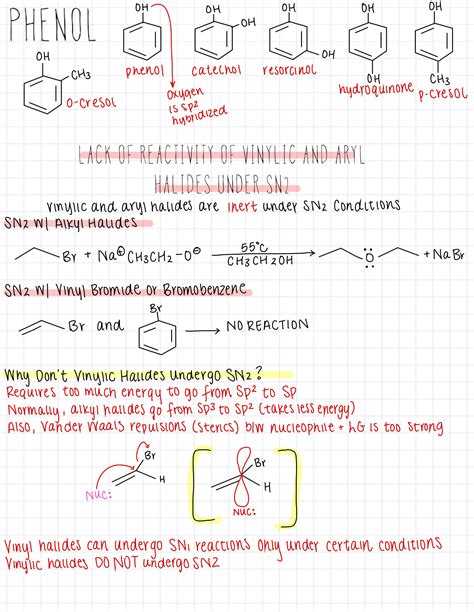 PHENOL
OH
CH3
o-cresol
OH
phenol
Oxygen
is sp²
hybridized
OH
OH
catechol
OH
OH
resorcinol
OH
OH
hydroquinone
OH
CH3
p-cresol
LACK OF REACTIVITY OF VINYLIC AND ARYL
HALIDES UNDER SN2
Vinylic and aryl halides are inert under SN2 Conditions
SN2 W/ Alkyl Halides
Br + Na⊕ CH3CH2-O⊖ 55°C CH3CH2OH O + NaBr
SN2 W/ Vinyl Bromide or Bromobenzene
Br and Br NO REACTION
Why Don't Vinylic Halides Undergo SN2?
Requires too much energy to go from Sp² to Sp
Normally, alkyl halides go from Sp³ to Sp² (takes less energy)
Also, Vander Waals repulsions (sterics) b/w nucleophile + LG is too strong
Br
H
NUC:
Br
H
NUC:
Vinyl halides can undergo SN1 reactions only under certain conditions
Vinylic halides DO NOT undergo SN2